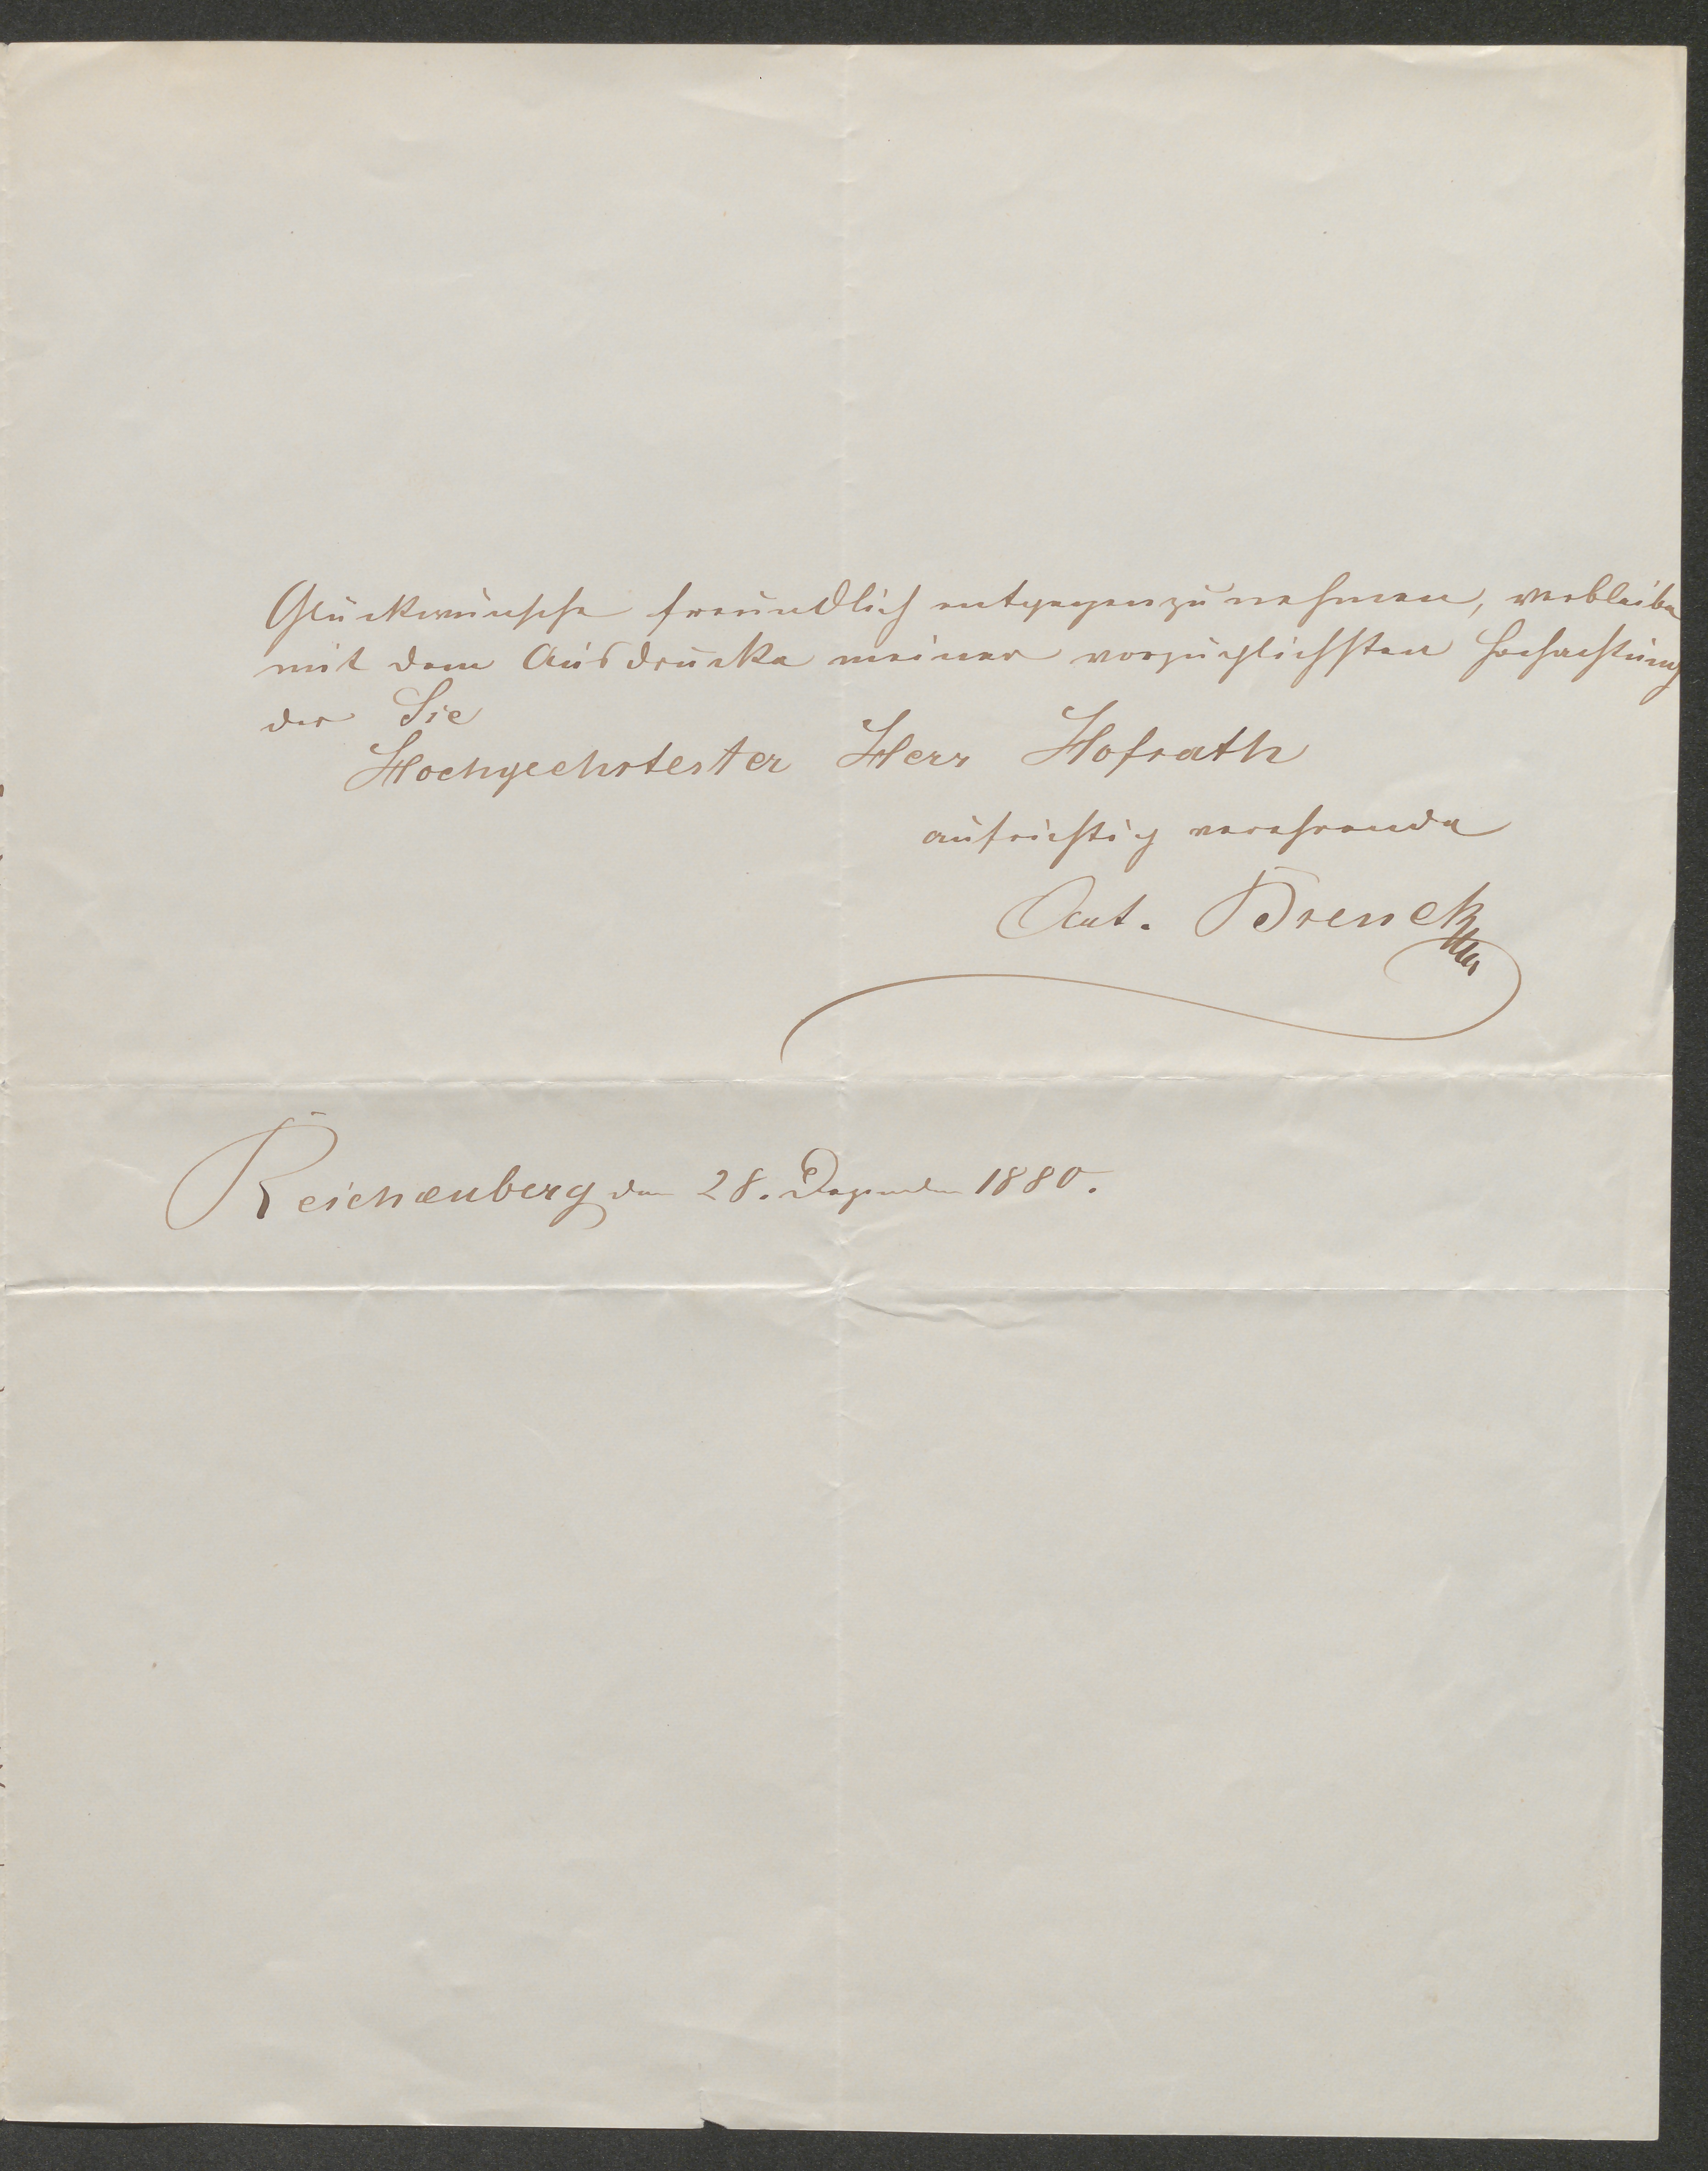 Glückwünsche freundlich entgegenzunehmen, verbleibe
mit dem Ausdrucke meiner vorzüglichsten Hochachtung
der Sie
Hochgeehrtester Herr Hofrath
aufrichtig verehrende
Ant. Brenck
Reichenberg den 28. Dezember 1880.